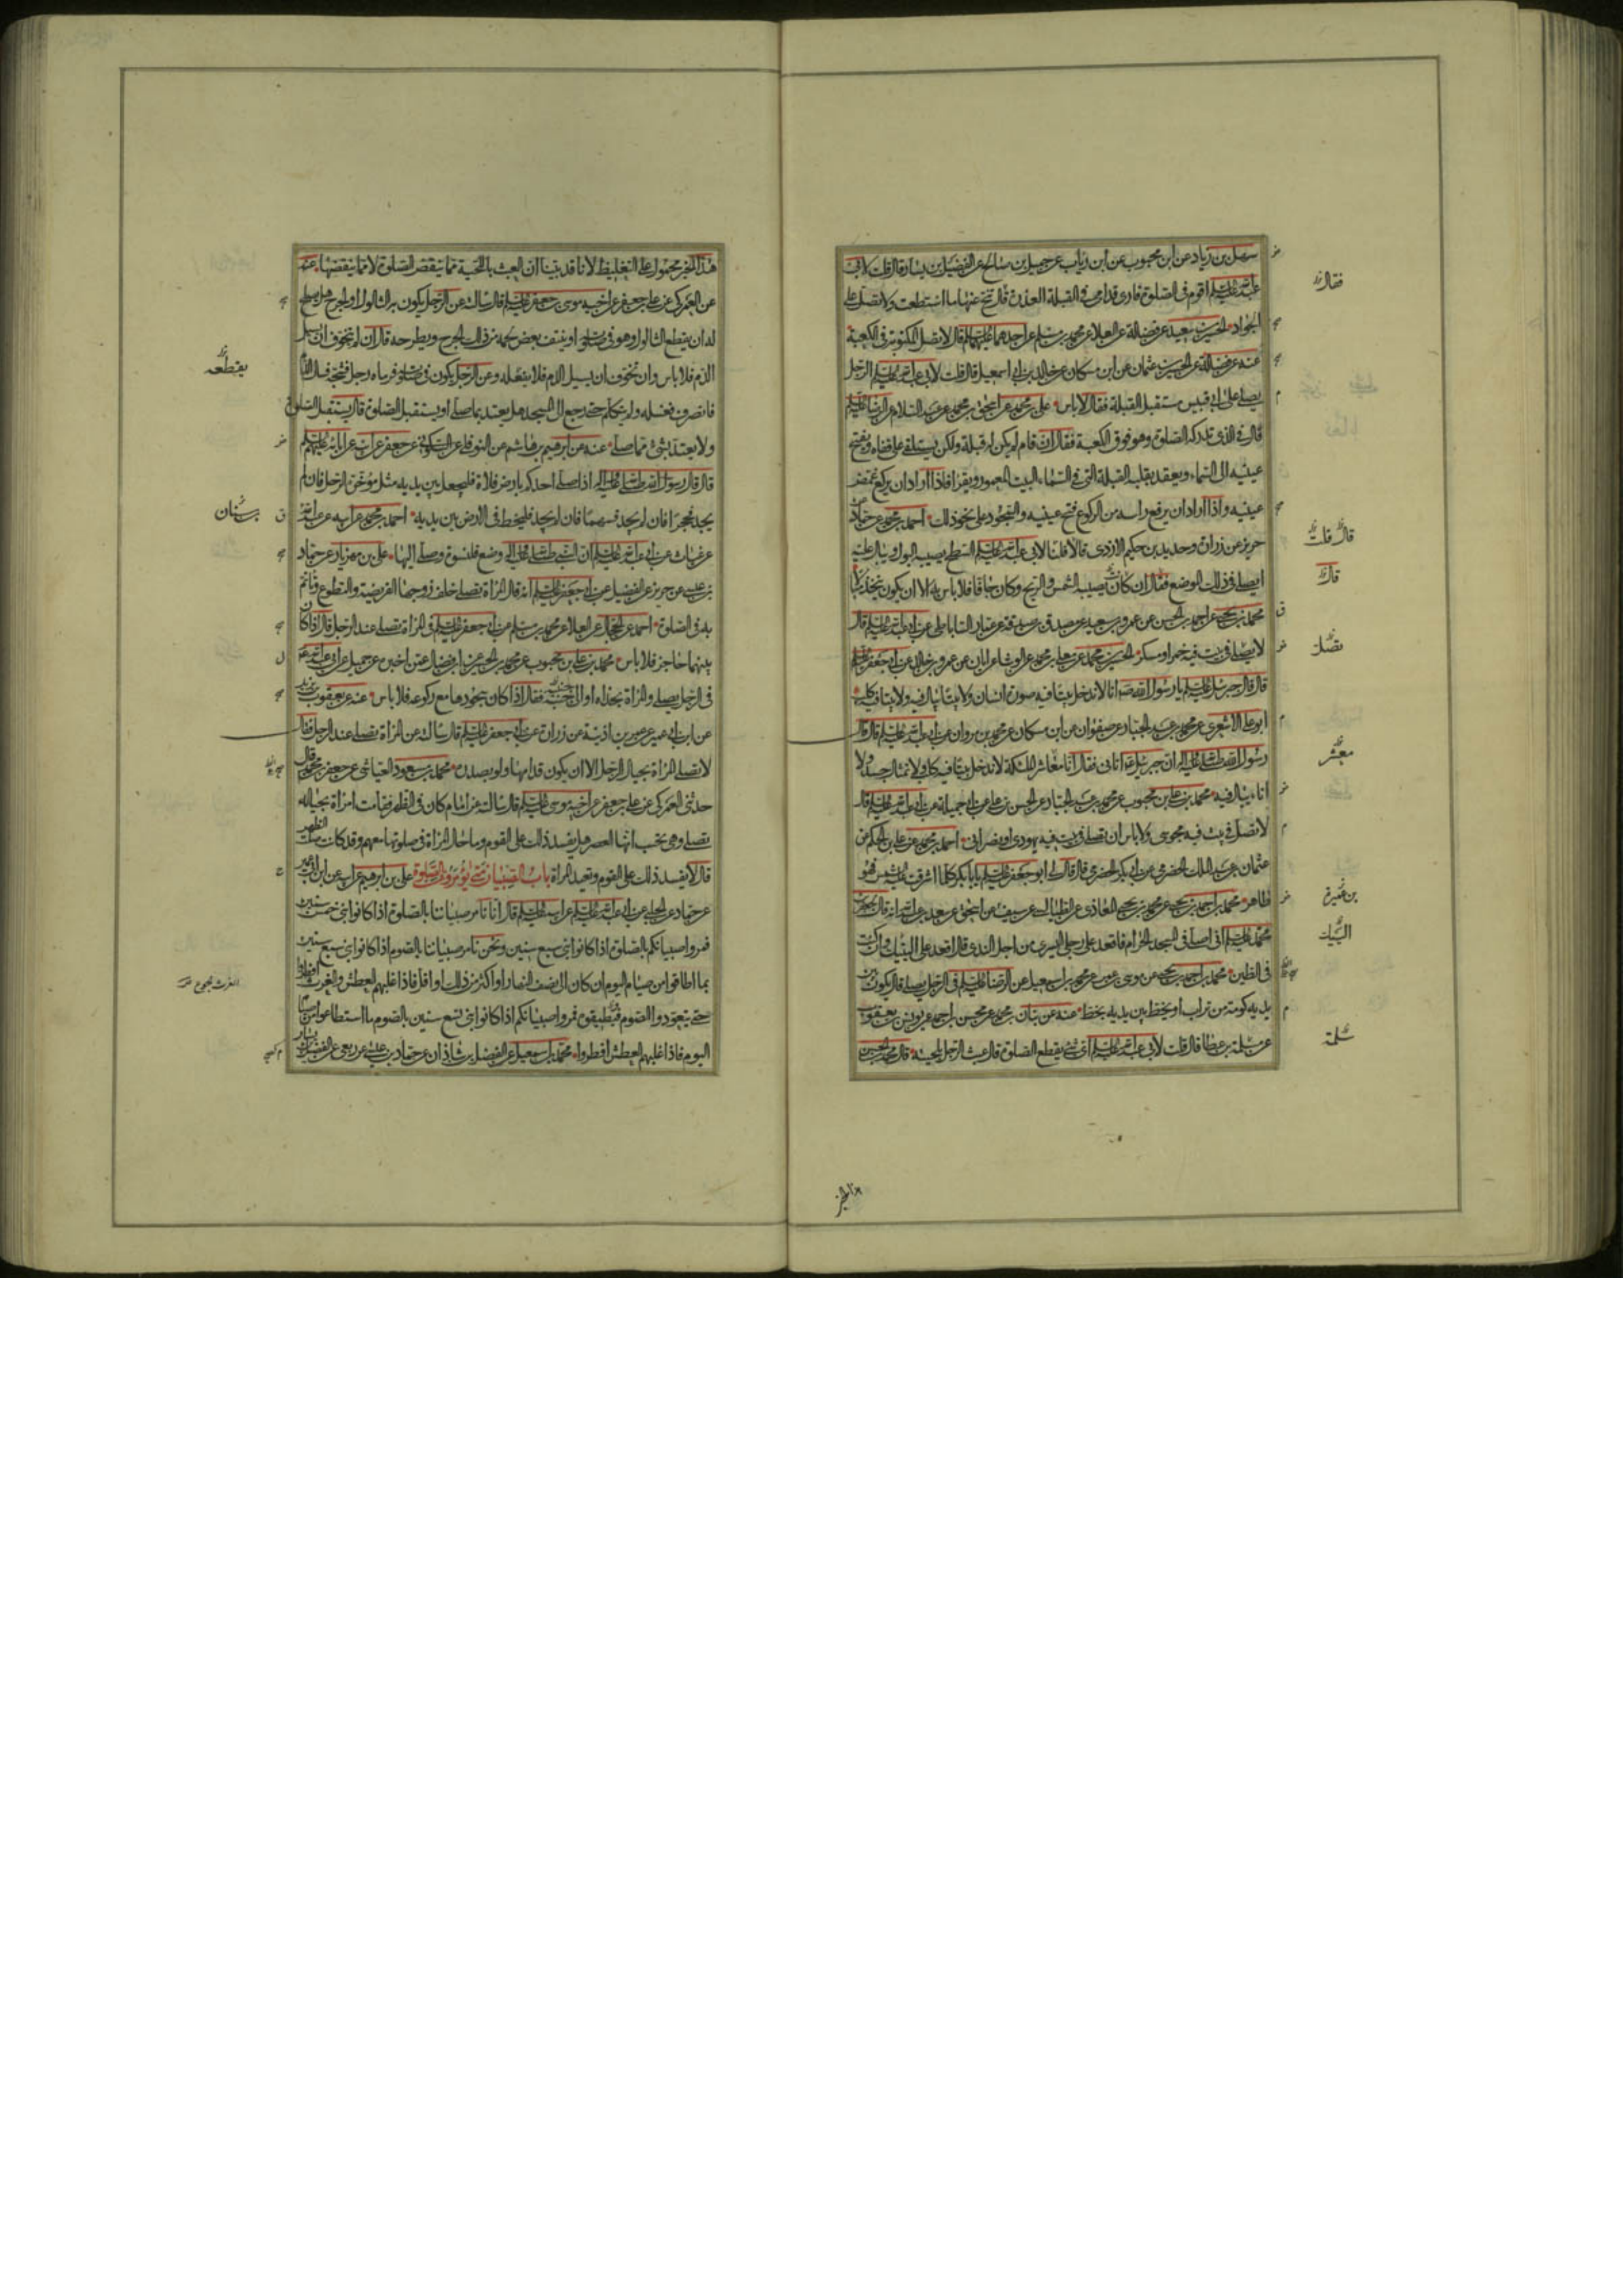 سهل بن زياد عن ابن محبوب عن ابن رياب عن جميل بن صالح عن الفضيل بن يسار قال قلت لابى
عبد الله عليه السلم اقوم فى الصلوة فارى قدامى فى القبلة العذرة قال تنح عنها ما استطعت ولا تصل على
الجواد الحسين بن سعيد عن فضالة عن العلاء عن محمد بن مسلم عن احدهما عليهما السلم قال لا تصل المكتوبة فى الكعبة
عنه عن فضالة عن الحسين بن عثمان عن ابن مسكان عن خالد بن ابى اسمعيل قال قلت لابى عبد الله عليه السلم الرجل
يصلى على ابى قبيس مستقبل القبلة فقال لا باس على بن محمد عن اسحق بن محمد عن عبد السلام عن الرضا عليه السلم
قال فى الذى تدركه الصلوة وهو فوق الكعبة فقال ان قام لم يكن له قبلة ولكن يستلقى على قفاه ويفتح
عينيه الى السماء ويعقد بقلبه القبلة التى فى السماء البيت المعمور ويقرا فاذا اراد ان يركع غمض
عينيه واذا اراد ان يرفع راسه من الركوع فتح عينيه والسجود على نحو ذلك احمد بن محمد عن حماد عن
حريز عن زرارة وحديد بن حكيم الازدى قالا قلنا لابى عبد الله عليه السلم السطح يصيبه البول ويبال عليه
ايصلى فى ذلك الموضع فقال ان كان تصيبه الشمس والريح وكان جافا فلا باس به الا ان يكون يتخذ مبالا
محمد بن يحيى عن احمد بن الحسن عن عمرو بن سعيد عن مصدق بن صدقة عن عمار الساباطى عن ابى عبد الله عليه السلم قال
لا يصلى فى بيت فيه خمر او مسكر الحسين بن محمد عن معلى بن محمد عن الوشا عن ابان عن عمرو بن خالد عن ابى جعفر عليه السلم
قال قال جبرئيل عليه السلم يا رسول الله ص انا لا ندخل بيتا فيه صورة انسان ولا بيتا يبال فيه ولا بيتا فيه كلب
ابو على الاشعرى عن محمد بن عبد الجبار عن صفوان عن ابن مسكان عن محمد بن مروان عن ابى عبد الله عليه السلم قال قال
رسول الله صلى الله عليه واله ان جبرئيل ع اتانى فقال انا معاشر الملئكة لا ندخل بيتا فيه كلب ولا تمثال جسد ولا
اناء يبال فيه محمد بن على بن محبوب عن محمد بن عبد الجبار عن الحسن بن على عن ابى جميلة عن ابى عبد الله عليه السلم قال
لا تصل فى بيت فيه مجوسى ولا باس ان تصلى فى بيت فيه يهودى او نصرانى احمد بن محمد عن على بن الحكم عن
عثمان عن عبد الملك الحضرمى عن ابى بكر الحضرمى قال قال لى ابو جعفر عليه السلم يا بابكر كلما اشرقت عليه الشمس فهو
طاهر محمد بن احمد بن يحيى عن محمد بن يحيى المعاذى عن الطيالسى عن سيف بن عميرة عن اسحق
محمد عليه السلم انى اصلى فى المسجد الحرام فاقعد على رجلى اليسرى من اجل الندى قال اقعد على اليتيك وان كنت
فى الطين محمد بن احمد بن يحيى عن محمد بن اسمعيل عن الرضا عليه السلم فى الرجل يصلى قال يكون بين
يديه كومة من تراب او يخط بين يديه بخط عنه عن بنان بن محمد عن محسن بن احمد عن يونس بن يعقوب
عن سلمة بن عطا قال قلت لابى عبد الله عليه السلم اى شئ يقطع الصلوة قال عبث الرجل بلحيته قال محمد بن الحسن
فقال
قال قلت
قال
تصل
معشر
بن عميرة
اليتيك
سلمة
هذا الخبر
هذا الخبر محمول على التغليظ لانا قد بينا ان العبث باللحية مما ينقص الصلوة لا مما ينقضها عنه
عن العمركى عن على بن جعفر عن اخيه موسى بن جعفر عليه السلم قال سالته عن الرجل يكون به الثالول او الجرح هل يصلح
له ان يقطع الثالول وهو فى صلوته او ينتف بعض لحمه من ذلك الجرح ويطرحه قال ان لم يتخوف ان يسيل
الدم فلا باس وان تخوف ان يسيل الدم فلا يفعله وعن الرجل يكون فى صلوته فرماه رجل فشجه فسال الدم
فانصرف فغسله ولم يتكلم حتى رجع الى المسجد هل يعتد بما صلى او يستقبل الصلوة قال يستقبل الصلوة
ولا يعتد بشئ مما صلى عنه عن ابرهيم بن هاشم عن النوفلى عن السكونى عن جعفر عن ابيه عن ابائه عليهم السلم
قال قال رسول الله صلى الله عليه واله اذا صلى احدكم بارض فلاة فليجعل بين يديه مثل مؤخرة الرحل فان لم
يجد فحجرا فان لم يجد فسهما فان لم يجد فليخط فى الارض بين يديه احمد بن محمد عن ابيه عن عبد الله
عن غياث عن ابى عبد الله عليه السلم ان النبى صلى الله عليه واله وضع قلنسوة وصلى اليها على بن مهزيار عن حماد
بن عيسى عن حريز عن الفضيل عن ابى جعفر عليه السلم انه قال المراة تصلى خلف زوجها الفريضة والتطوع وتاتم
به فى الصلوة احمد عن الحجال عن العلاء عن محمد بن مسلم عن ابى جعفر عليه السلم فى المراة تصلى عند الرجل قال اذا كان
بينهما حاجز فلا باس محمد بن على بن محبوب عن محمد بن الحسين عن ابن فضال عمن اخبره عن جميل عن ابى عبد الله ع
فى الرجل يصلى والمراة بحذاه او الى جنبه فقال اذا كان سجودها مع ركوعه فلا باس عنه عن يعقوب بن يزيد
عن ابن ابى عمير عن عمر بن اذينة عن زرارة عن ابى جعفر عليه السلم قال سالته عن المراة تصلى عند الرجل فقال
لا تصلى المراة بحيال الرجل الا ان يكون قدامها ولو بصدره محمد بن مسعود العياشى عن جعفر بن محمد قال
حدثنى العمركى عن على بن جعفر عن اخيه موسى عليه السلم قال سالته عن امام كان فى الظهر فقامت امراة بحياله
تصلى وهى تحسب انها العصر هل يفسد ذلك على القوم وما حال المراة فى صلوتها معهم وقد كانت صلت الظهر
قال لا يفسد ذلك على القوم وتعيد المراة باب الصبيان متى يؤمرون بالصلوة على بن ابرهيم عن ابيه عن ابن ابى عمير
عن حماد عن الحلبى عن ابى عبد الله عليه السلم عن ابيه عليه السلم قال انا نامر صبياننا بالصلوة اذا كانوا بنى خمس سنين
فمروا صبيانكم بالصلوة اذا كانوا بنى سبع سنين ونحن نامر صبياننا بالصوم اذا كانوا بنى سبع سنين
بما اطاقوا من صيام اليوم ان كان الى نصف النهار او اكثر من ذلك او اقل فاذا غلبهم العطش والغرث افطروا
حتى يتعودوا الصوم فيطيقوه فمروا صبيانكم اذا كانوا بنى تسع سنين بالصوم ما استطاعوا من صيام
اليوم فاذا غلبهم العطش افطروا محمد بن اسمعيل عن الفضل بن شاذان عن حماد بن عيسى عن ربعى عن الفضيل بن يسار
يقطعه
بن سنان